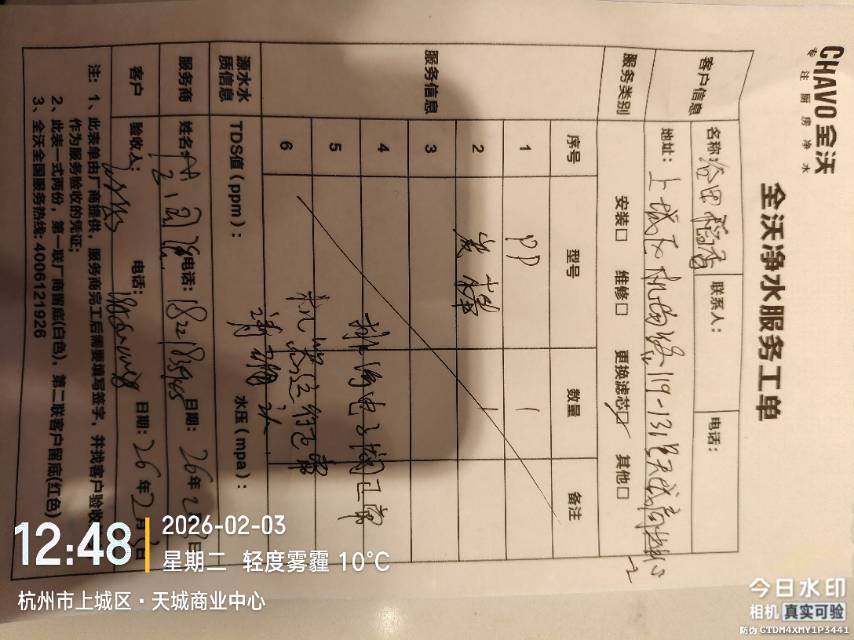 CHAVO 全沃
专注厨房净水
全沃净水服务工单
客户信息
名称：谷田稻香
联系人：
电话：
地址：上城区机场路119-131号天城商业中心
服务类别
安装□ 维修□ 更换滤芯☑ 其他□
服务信息
序号 型号 数量 备注
1 PP 1
2 炭棒 1
3
4
5
6
排污电子阀正常
机器运行正常
源水水质信息
TDS值（ppm）：
水压（mpa）：
服务商
姓名：
电话：
日期：26年2月3日
客户
验收人：
电话：
日期：26年2月3日
注：1、此表单由厂商提供，服务商完工后需要填写签字，并找客户验收
作为服务验收的凭证；
2、此表一式两份，第一联厂商留底(白色)，第二联客户留底(红色)
3、全沃全国服务热线：4006121926
12:48
2026-02-03
星期二 轻度雾霾 10°C
杭州市上城区·天城商业中心
今日水印
相机 真实可验
防伪 CTDM4XMY1P3441